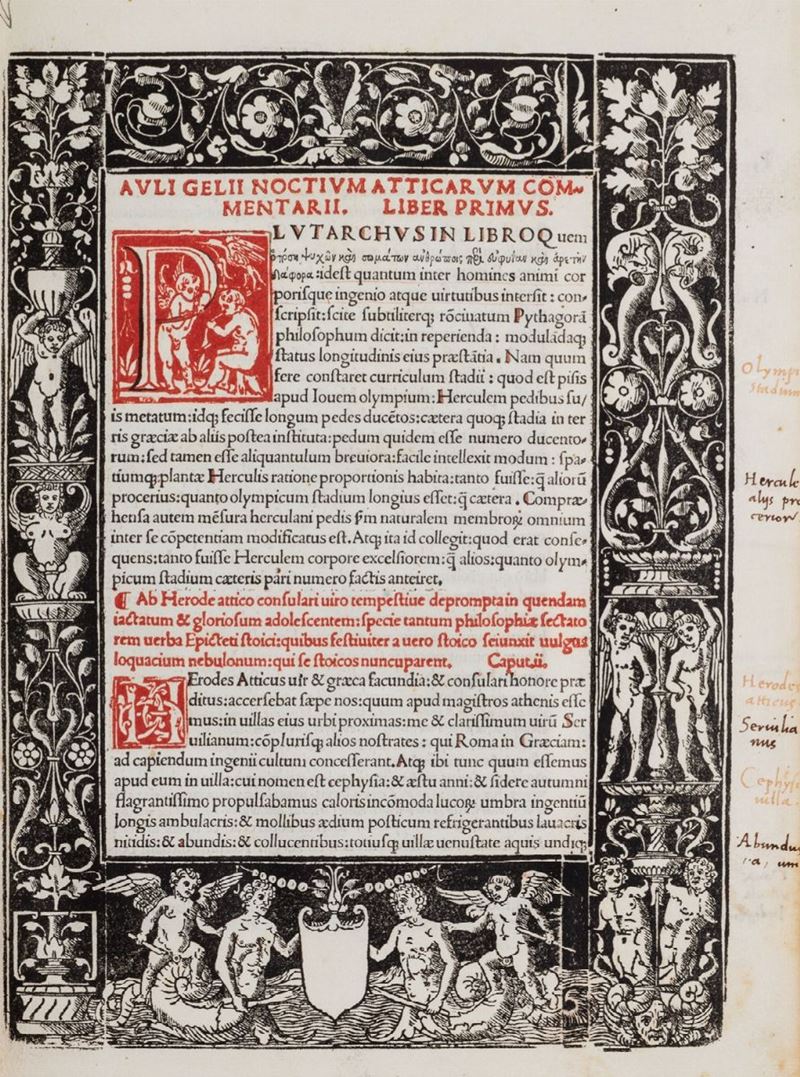 AVLI GELII NOCTIVM ATTICARVM COM-
MENTARII. LIBER PRIMVS.
PLVTARCHVS IN LIBRO Quem
ψυχῶν καὶ σωμάτων ἀνθρώποις περὶ εὐφυΐαν καὶ ἀρετὴν
διαφορα: idest quantum inter homines animi cor
porisque ingenio atque uirtutibus intersit: con-
scripsit: scite subtiliterq; rōciuatum Pythagorā
philosophum dicit: in reperienda: moduladaq;
status longitudinis eius præstātia. Nam quum
fere constaret curriculum stadii: quod est pisis
apud Iouem olympium: Herculem pedibus su/
is metatum: idq; fecisse longum pedes ducētos: cætera quoq; stadia in ter
ris græciæ ab aliis postea instituta: pedum quidem esse numero ducento-
rum: sed tamen esse aliquantulum breuiora: facile intellexit modum: spa-
tiumq; plantæ Herculis ratione proportionis habita: tanto fuisse: q̄ aliorū
procerius: quanto olympicum stadium longius esset: q̄ cætera. Compræ-
hensa autem mēsura herculani pedis ſm naturalem membroꝝ omnium
inter se cōpetentiam modificatus est. Atq; ita id collegit: quod erat conse-
quens: tanto fuisse Herculem corpore excelsiorem: q̄ alios: quanto olym-
picum stadium cæteris pari numero factis anteiret.
¶ Ab Herode attico consulari uiro tempestiue deprompta in quendam
iactatum & gloriosum adolescentem: specie tantum philosophiæ sectato
rem uerba Epicteti stoici: quibus festiuiter a uero stoico seiunxit uulgus
loquacium nebulonum: qui se stoicos nuncuparent. Caput.ii.
HErodes Atticus uir & græca facundia: & consulari honore præ
ditus: accersebat sæpe nos: quum apud magistros athenis esse
mus: in uillas eius urbi proximas: me & clarissimum uirū Ser
uilianum: cōplurisq; alios nostrates: qui Roma in Græciam:
ad capiendum ingenii cultum concesserant. Atq; ibi tunc quum essemus
apud eum in uilla: cui nomen est cephysia: & æstu anni: & sidere autumni
flagrantissimo propulsabamus caloris incōmoda lucoꝝ umbra ingentiū
longis ambulacris: & mollibus ædium posticum refrigerantibus lauacris
nitidis: & abundis: & collucentibus: totiusq; uillæ uenustate aquis undiq;
Olympi
stadium
Hercule
alijs pro
cerior
Herodes
atticus
Seruilia
nus
Cephysi
uilla
Abundu